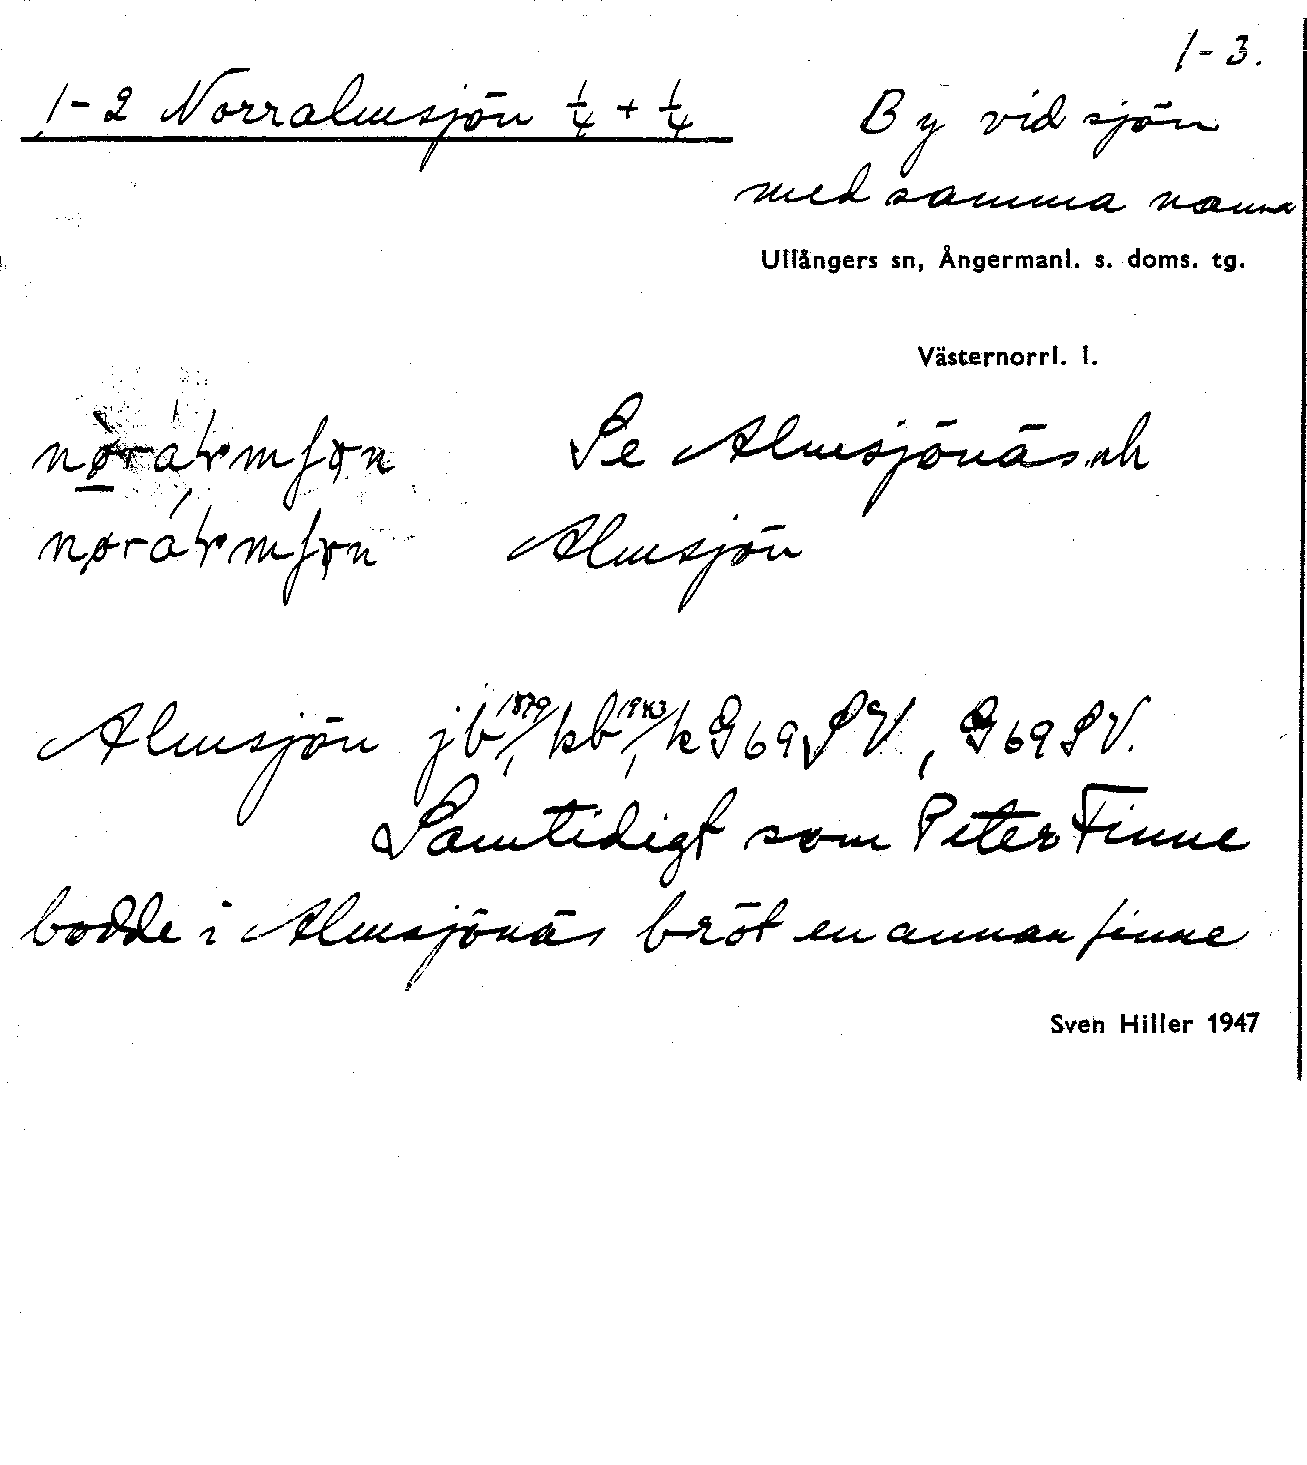 1-3.
1-2 Norralmsjön ¼ + ¼
By vid sjön
med samma namn
Ullångers sn, Ångermanl. s. doms. tg.
Västernorrl. l.
Se Almsjönäs och
Almsjön
Almsjön jb 1879, kb 1943, k G69SV, G69SV.
Samtidigt som Peter Finne
bodde i Almsjönäs bröt en annan finne
Sven Hiller 1947